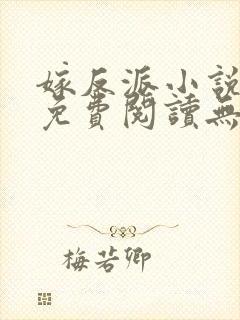 嫁反派小說
免費閱讀無
梅若卿